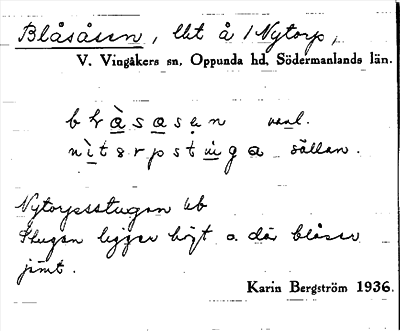 Blåsåsen, lht å / Nytorp,
V. Vingåkers sn, Oppunda hd, Södermanlands län.
blåsasen vanl.
nìtorpstuga sällan.
Nytorpsstugan bb
Stugan ligger högt o. där blåser
jämt.
Karin Bergström 1936.